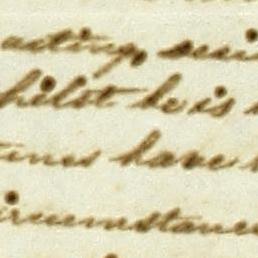 acting,
hilst he is
times have
ircumstance